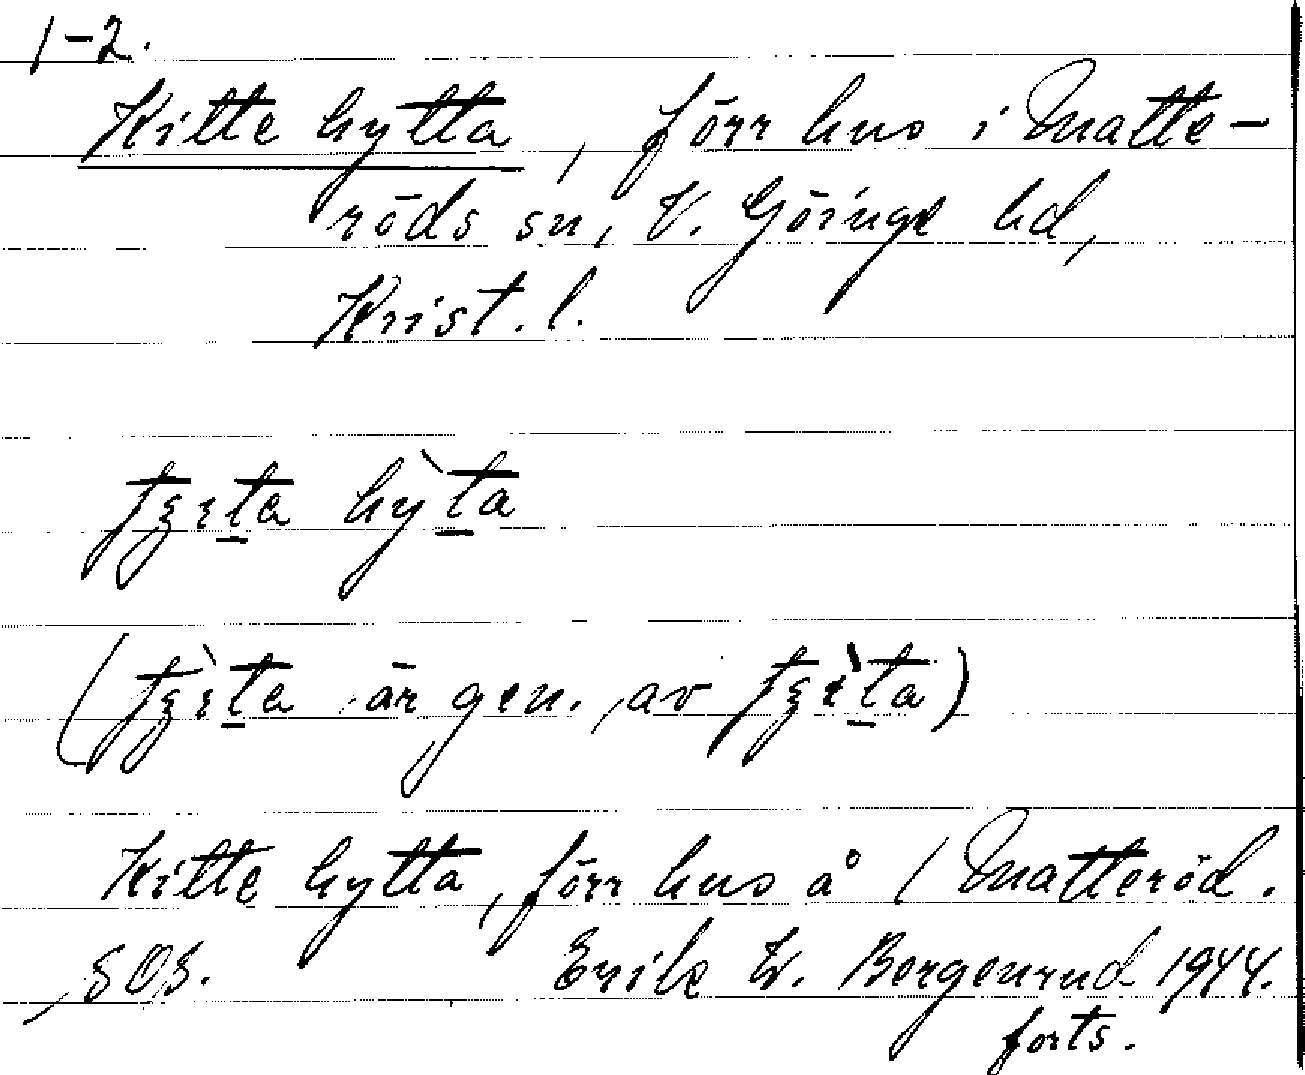 1-2.
Kitte hytta, förr hus i Matte-
röds sn, V. Göinge hd,
Krist. l.
tʒɪta hỳta
(tʒɪ̀ta är gen. av tʒɪ̀ta)
Kitte hytta, förr hus å 1 Matteröd.
SOS. Erik W. Bergenrud 1944.
forts.